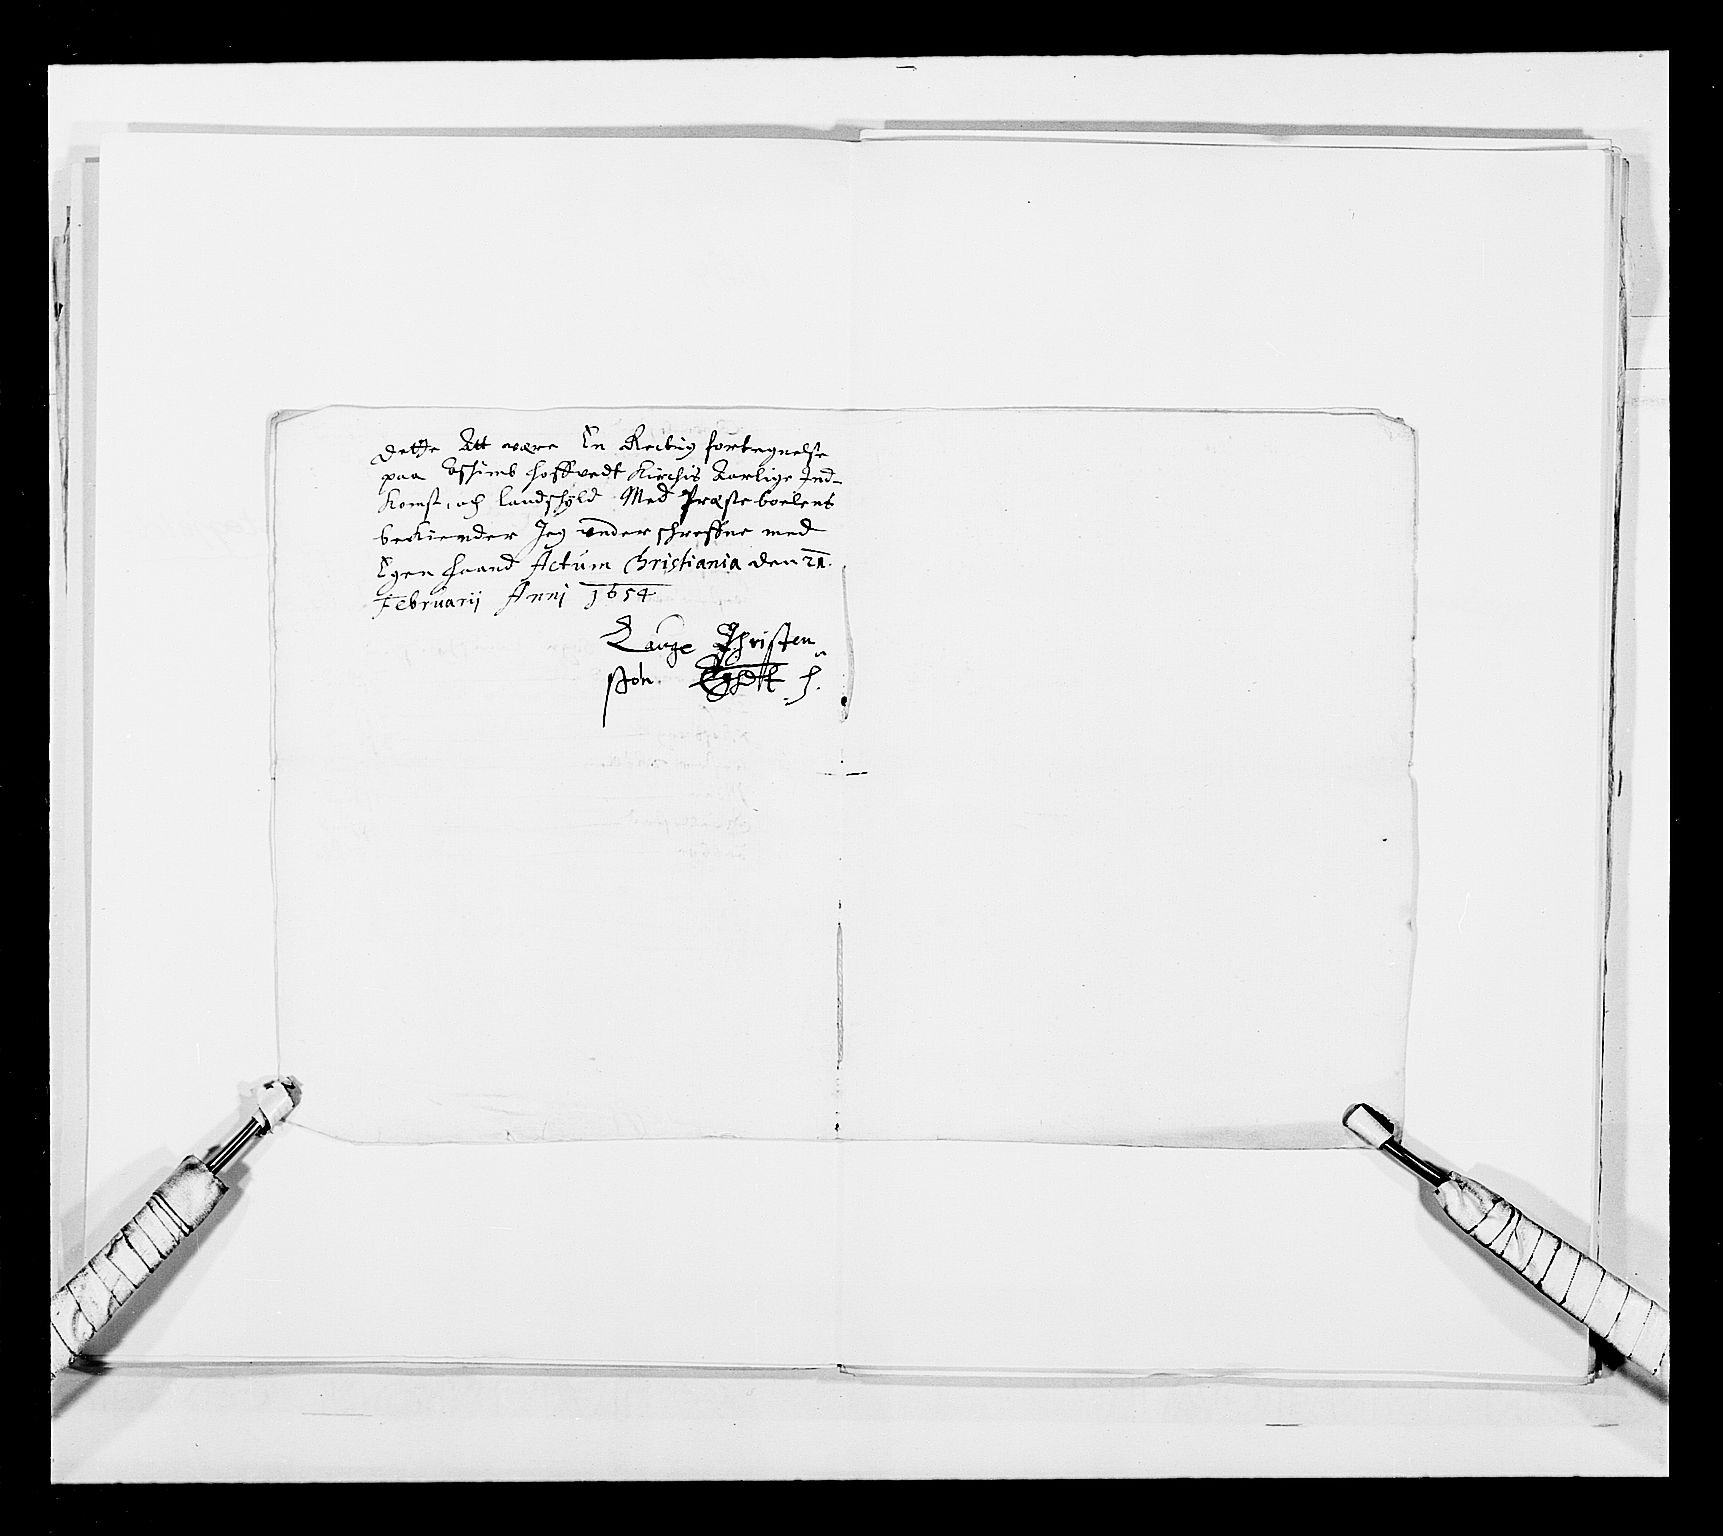 Dette Att være En Rectig fortegnelse
paa hoffvedt Kirchis Aarlige Ind-
Komst, och landschyld Med Præsteboelens
bekiender Jeg underschreffne med
Egen haand Actum Christiania den 21.
Februarij Anni 1654
Lauge Christen
søn. h.